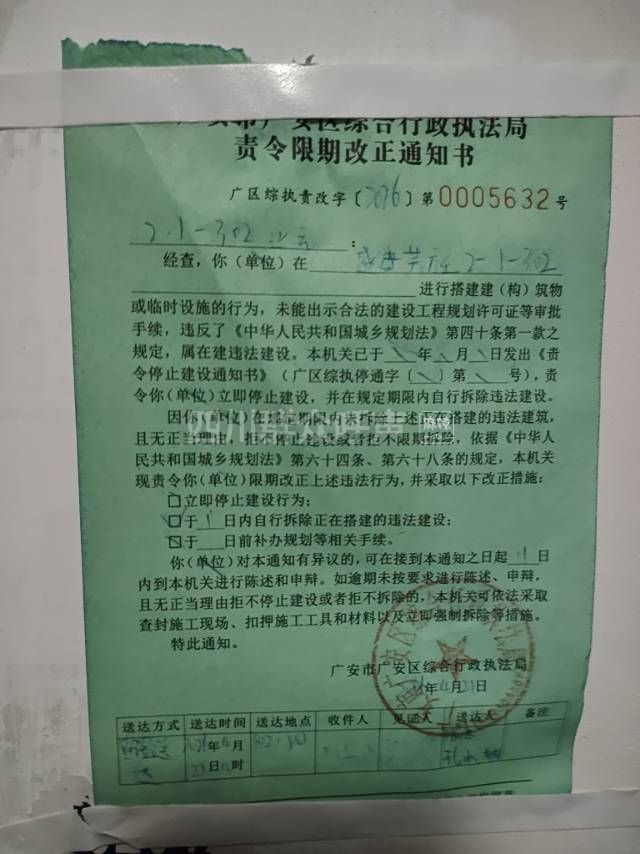 广安市广安区综合行政执法局
责令限期改正通知书
广区综执责改字〔2026〕第0005632号
2-1-302
经查，你（单位）在 2-1-302
进行搭建建（构）筑物
或临时设施的行为，未能出示合法的建设工程规划许可证等审批
手续，违反了《中华人民共和国城乡规划法》第四十条第一款之
规定，属在建违法建设。本机关已于 年 月 日发出《责
令停止建设通知书》（广区综执停通字〔 〕第 号），责
令你（单位）立即停止建设，并在规定期限内自行拆除违法建设。
因你（单位）在规定期限内未拆除上述正在搭建的违法建筑，
且无正当理由，拒不停止建设或者拒不限期拆除，依据《中华人
民共和国城乡规划法》第六十四条、第六十八条的规定，本机关
现责令你（单位）限期改正上述违法行为，并采取以下改正措施：
□立即停止建设行为；
于 日内自行拆除正在搭建的违法建设；
于 日前补办规划等相关手续。
你（单位）对本通知有异议的，可在接到本通知之日起 日
内到本机关进行陈述和申辩。如逾期未按要求进行陈述、申辩，
且无正当理由拒不停止建设或者拒不拆除的，本机关可依法采取
查封施工现场、扣押施工工具和材料以及立即强制拆除等措施。
特此通知。
广安市广安区综合行政执法局
年4月21日
送达方式 送达时间 送达地点 收件人 见证人 送达人 备注
年4月
21日 时
四川群众呼声